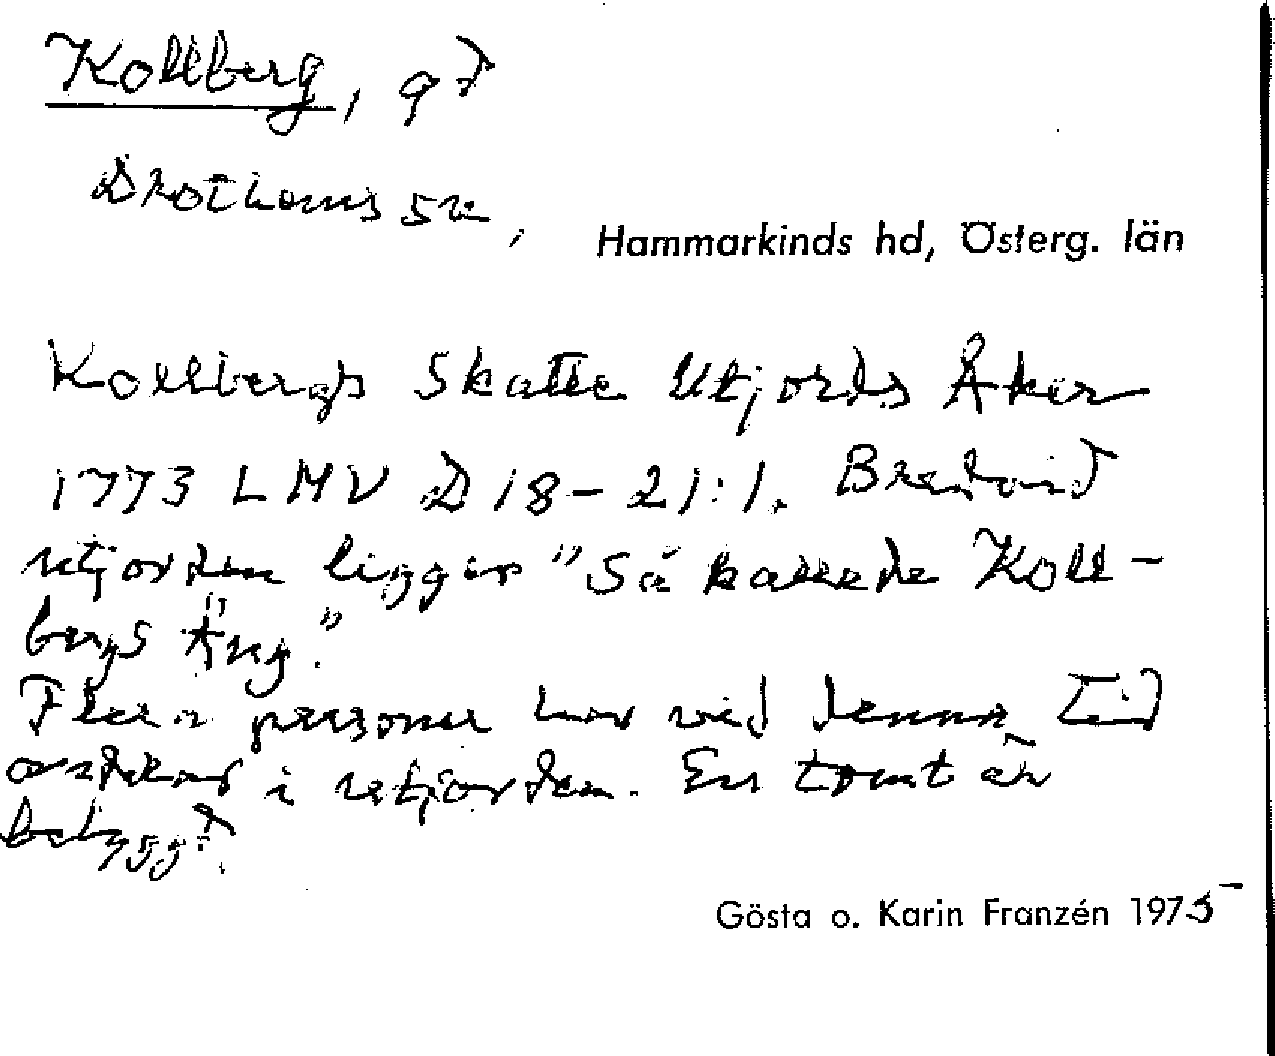 Kollberg, gd
Drothems sn,
Hammarkinds hd, Österg. län
Kollbergs Skatte Utjords Åker
1773 LMV D 18-21:1. Bredvid
utjorden ligger "Så kallede Koll-
bergs Äng."
Flera personer har vid denna tid
andelar i utjorden. En tomt är
bebyggd.
Gösta o. Karin Franzén 1975